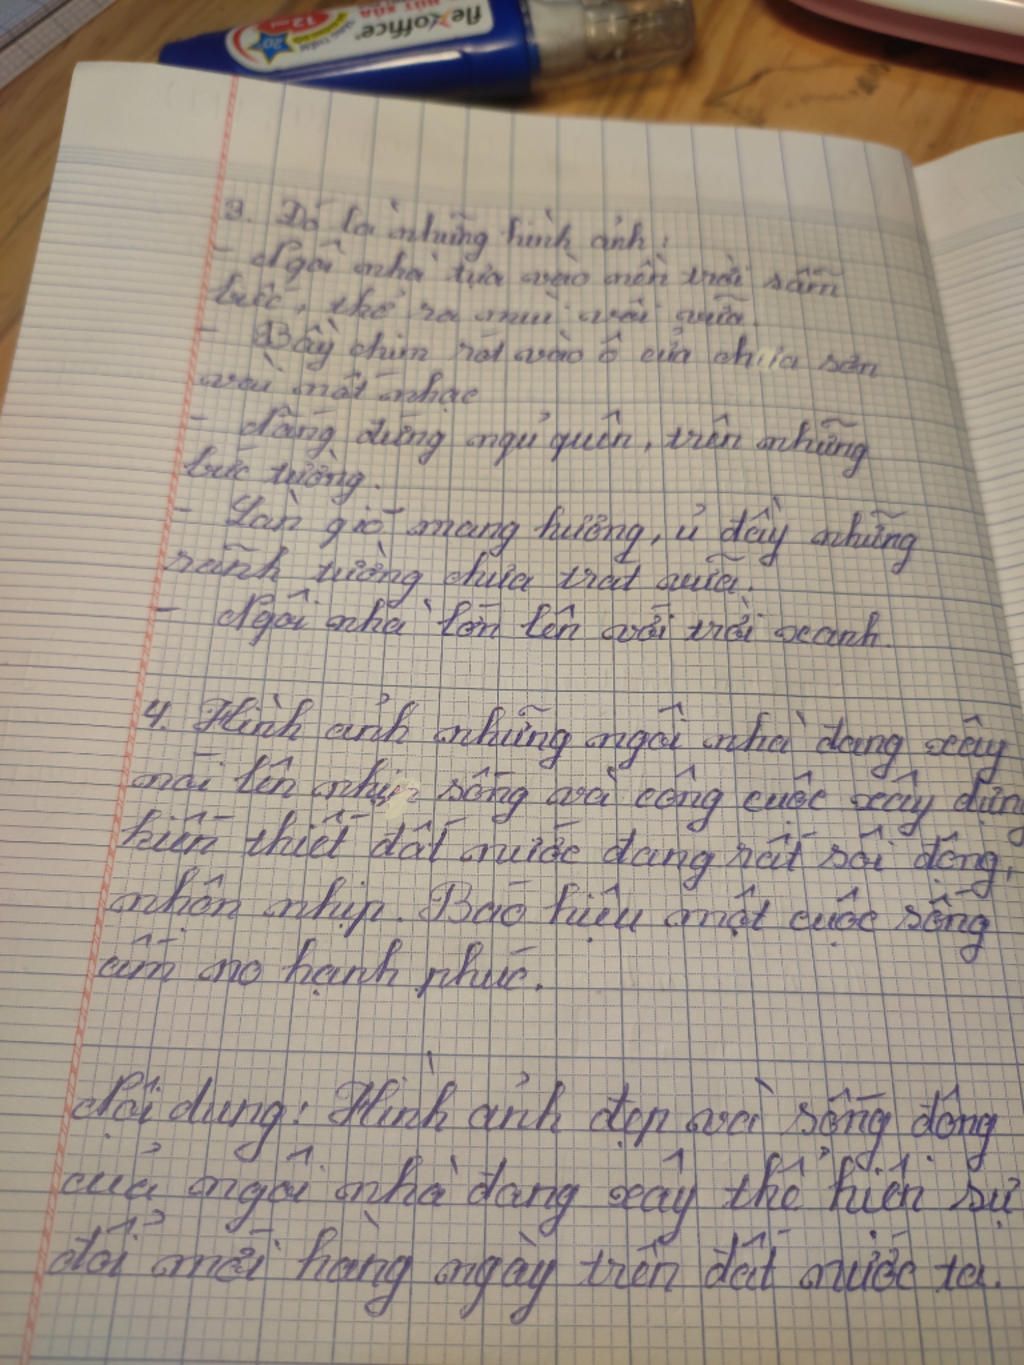 flexoffice
BÚT XÓA
12ml
3. Đó là những hình ảnh:
- Ngôi nhà tựa vào nền trời sẫm
biếc, thở ra mùi vôi vữa.
- Bầy chim rót vào ô cửa chưa sơn
vài nốt nhạc
- Nắng đứng ngủ quên, trên những
bức tường.
- Làn gió mang hương, ủ đầy những
rãnh tường chưa trát vữa.
- Ngôi nhà lớn lên với trời xanh.
4. Hình ảnh những ngôi nhà đang xây
nói lên nhịp sống và công cuộc xây dựng
kiến thiết đất nước đang rất sôi động,
nhộn nhịp. Báo hiệu một cuộc sống
ấm no hạnh phúc.
Nội dung: Hình ảnh đẹp và sống động
của ngôi nhà đang xây thể hiện sự
đổi mới hàng ngày trên đất nước ta.